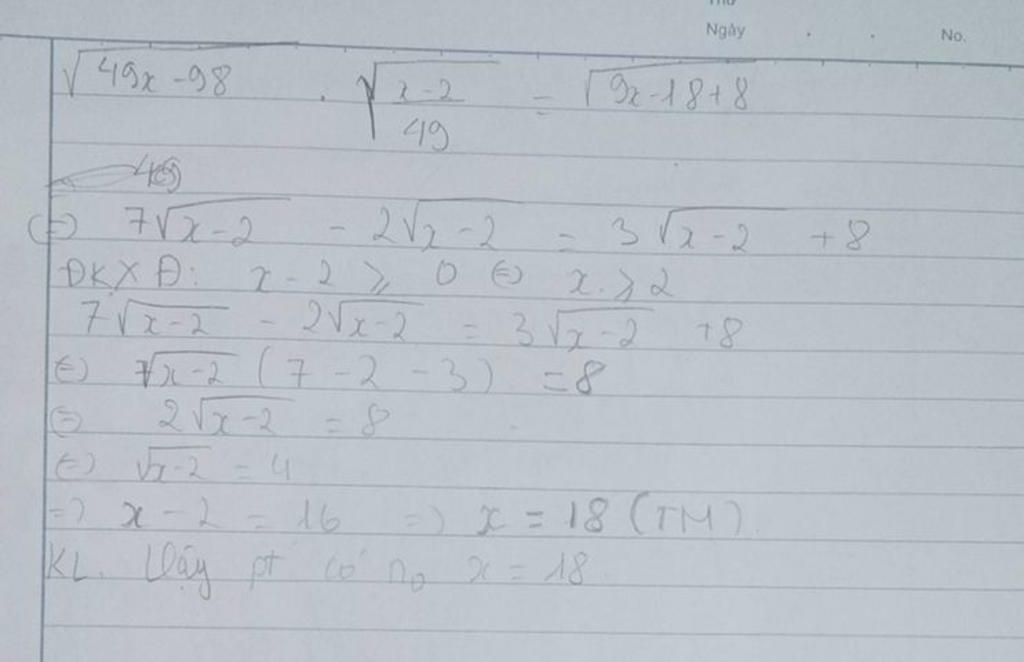 Thứ
Ngày . . No.
√(49x - 98) . √((x-2)/49) = √(9x-18+8)
(=) 7√(x-2) - 2√(x-2) = 3√(x-2) + 8
ĐKXĐ: x - 2 ⩾ 0 (=) x ⩾ 2
7√(x-2) - 2√(x-2) = 3√(x-2) + 8
(=) √(x-2) (7 - 2 - 3) = 8
(=) 2√(x-2) = 8
(=) √(x-2) = 4
=) x - 2 = 16 =) x = 18 (TM).
KL. Vậy pt có no x = 18